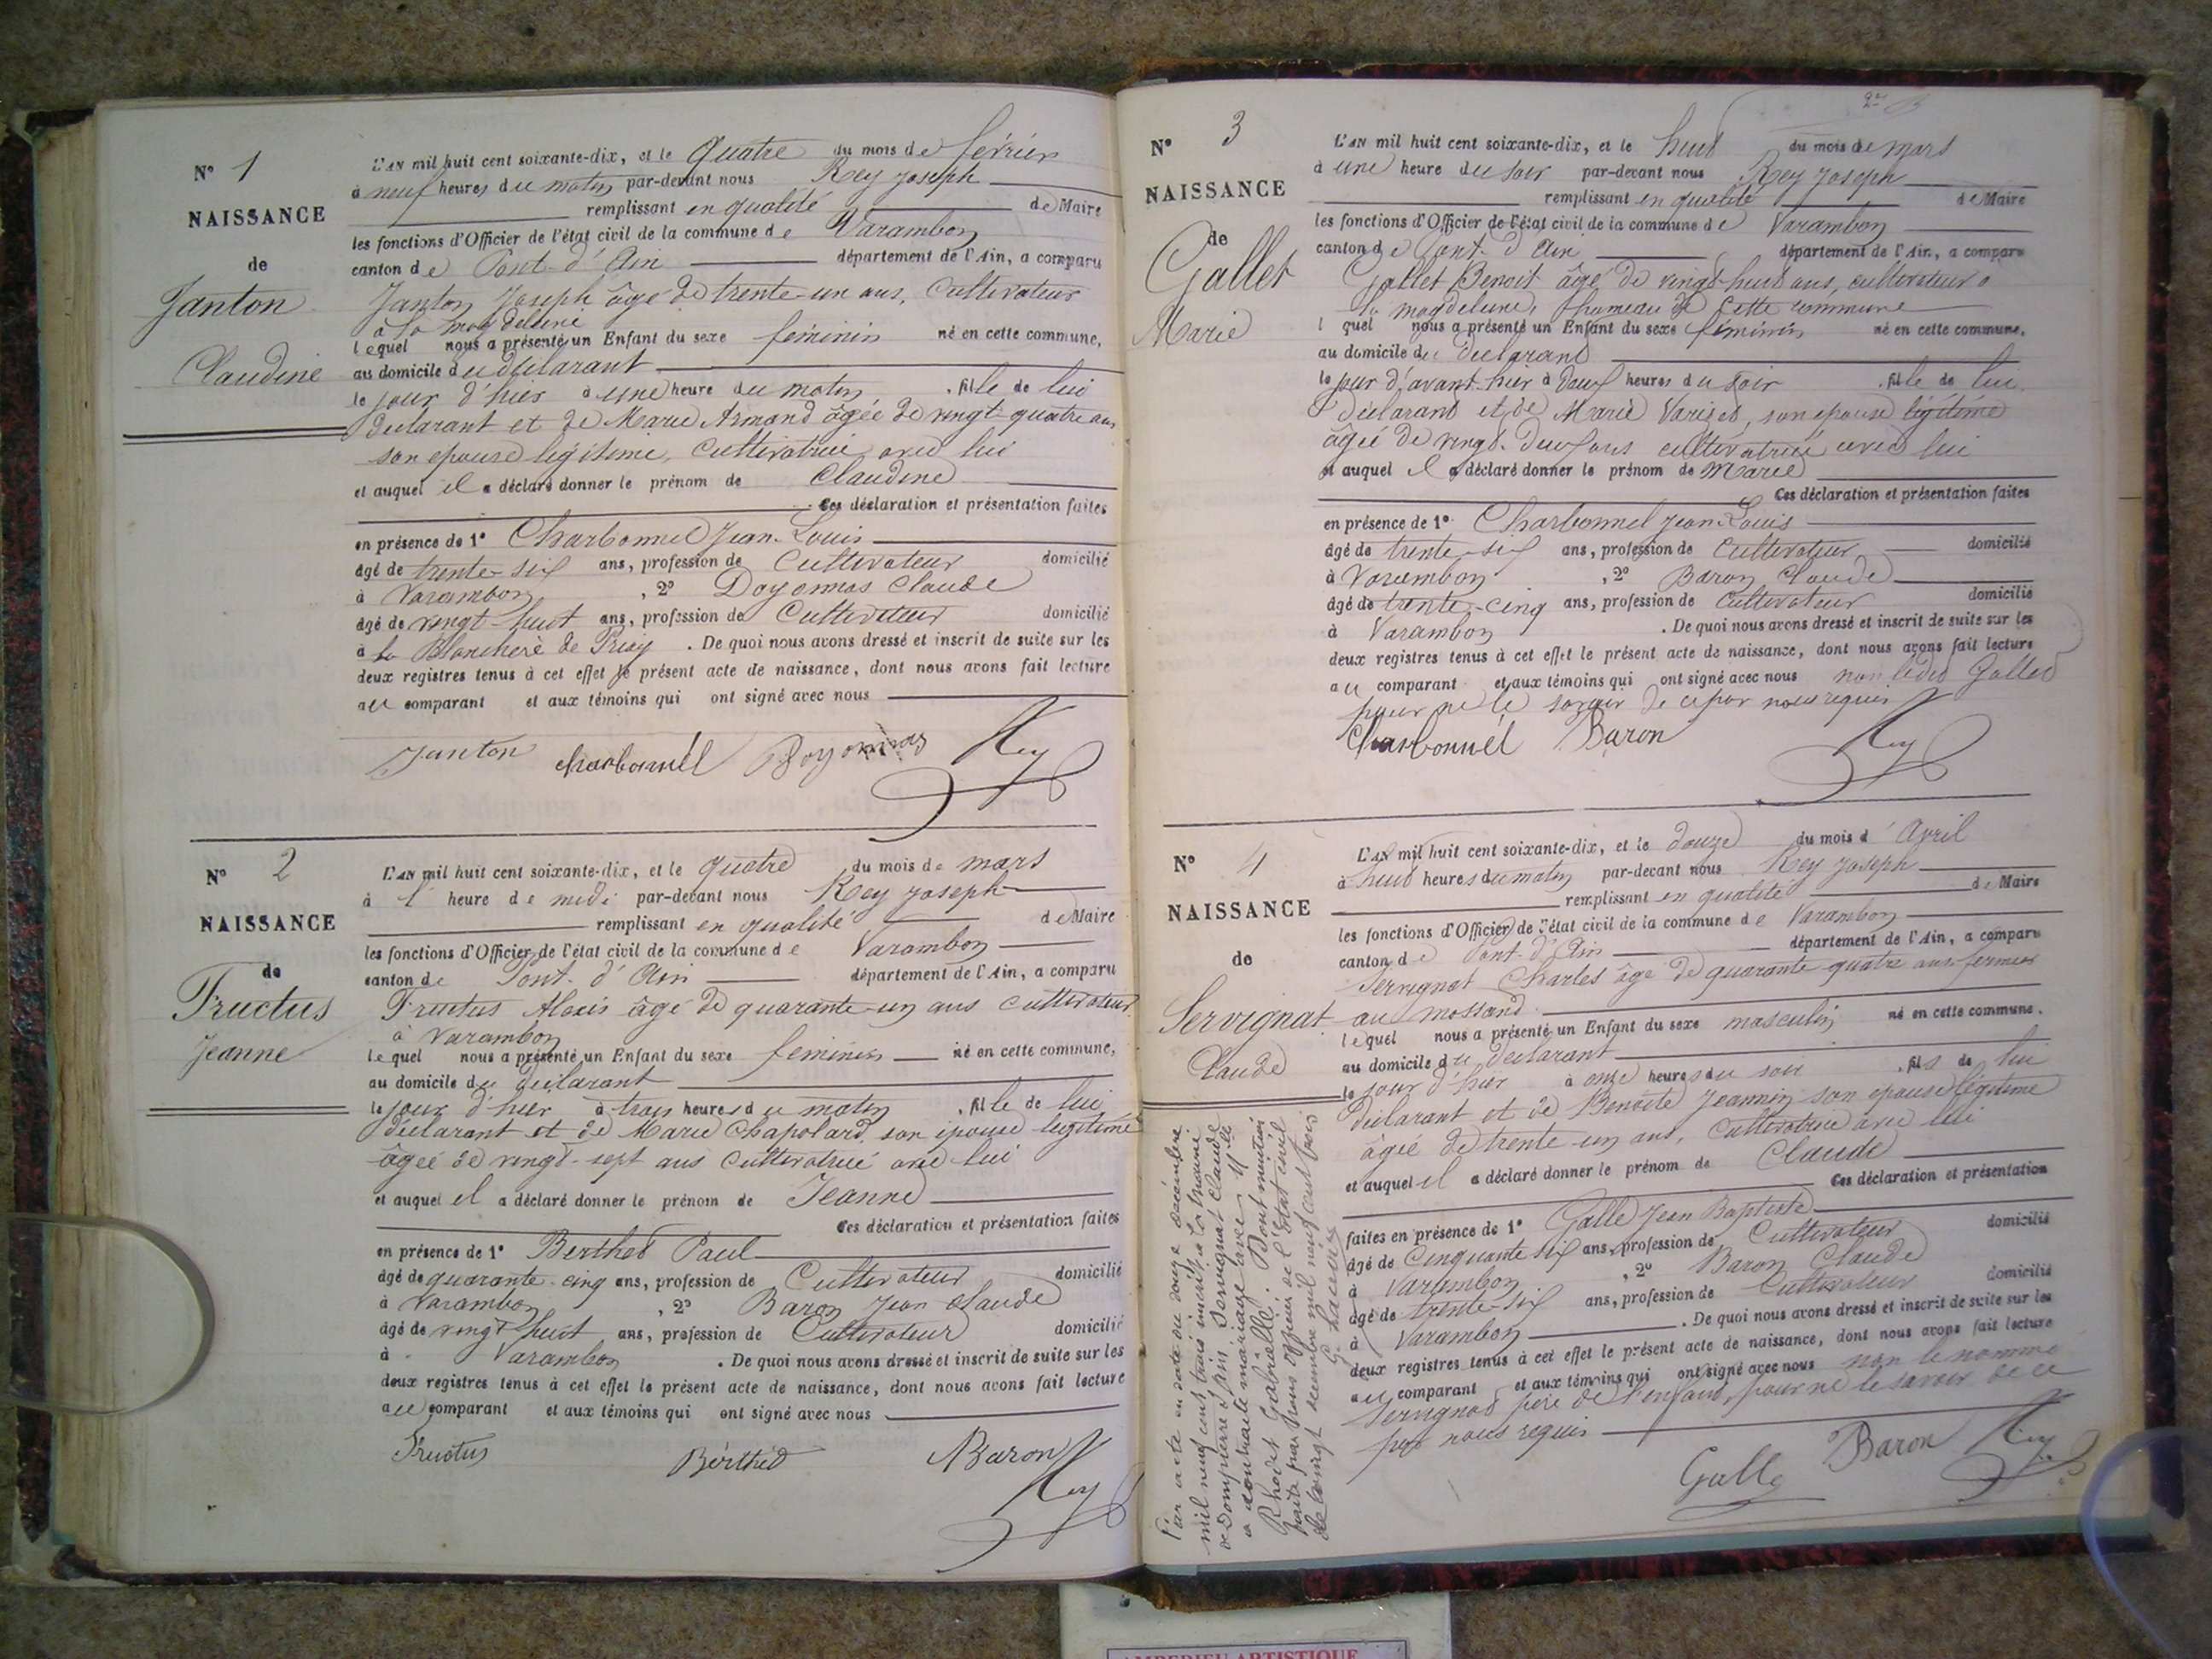 N° 1
NAISSANCE
de
Janton
Claudine
L'AN mil huit cent soixante-dix, et le quatre du mois de février
à neuf heures du matin par-devant nous Rey Joseph
remplissant en qualité de Maire
les fonctions d'Officier de l'état civil de la commune de Varambon
canton de Pont-d'Ain département de l'Ain, a comparu
Janton Joseph âgé de trente-un ans, Cultivateur
à la magdeleine
lequel nous a présenté un Enfant du sexe féminin né en cette commune,
au domicile du déclarant
le jour d'hier à une heure du matin, fille de lui
déclarant et de Marie Armand âgée de vingt-quatre ans
son épouse légitime, cultivatrice avec lui
et auquel il a déclaré donner le prénom de Claudine
Ces déclaration et présentation faites
en présence de 1° Charbonnel Jean-Louis
âgé de trente-six ans, profession de Cultivateur domicilié
à Varambon, 2° Doyonnas Claude
âgé de vingt-huit ans, profession de Cultivateur domicilié
à la Blanchère de Priay. De quoi nous avons dressé et inscrit de suite sur les
deux registres tenus à cet effet le présent acte de naissance, dont nous avons fait lecture
au comparant et aux témoins qui ont signé avec nous
Janton charbonnel Doyonnas Rey
N° 2
NAISSANCE
de
Fructus
Jeanne
L'AN mil huit cent soixante-dix, et le quatre du mois de mars
à 1 heure de midi par-devant nous Rey Joseph
remplissant en qualité de Maire
les fonctions d'Officier de l'état civil de la commune de Varambon
canton de Pont-d'Ain département de l'Ain, a comparu
Fructus Alexis âgé de quarante-un ans cultivateur
à Varambon
lequel nous a présenté un Enfant du sexe féminin né en cette commune,
au domicile du déclarant
le jour d'hier à trois heures du matin, fille de lui
déclarant et de Marie Chapolard son épouse légitime
âgée de vingt-sept ans cultivatrice avec lui
et auquel il a déclaré donner le prénom de Jeanne
Ces déclaration et présentation faites
en présence de 1° Berthet Paul
âgé de quarante-cinq ans, profession de Cultivateur domicilié
à Varambon, 2° Baron Jean Claude
âgé de vingt huit ans, profession de Cultivateur domicilié
à Varambon. De quoi nous avons dressé et inscrit de suite sur les
deux registres tenus à cet effet le présent acte de naissance, dont nous avons fait lecture
au comparant et aux témoins qui ont signé avec nous
Fructus Berthet Baron Rey
N° 3
NAISSANCE
de
Gallet
Marie
L'AN mil huit cent soixante-dix, et le huit du mois de mars
à une heure du soir par-devant nous Rey Joseph
remplissant en qualité de Maire
les fonctions d'Officier de l'état civil de la commune de Varambon
canton de Pont-d'Ain département de l'Ain, a comparu
Gallet Benoit âgé de vingt-huit ans, cultivateur à
la magdeleine, hameau de cette commune
lequel nous a présenté un Enfant du sexe féminin né en cette commune,
au domicile du déclarant
le jour d'avant-hier à deux heures du soir, fille de lui
déclarant et de Marie Variset, son épouse légitime
âgée de vingt-deux ans cultivatrice avec lui
et auquel il a déclaré donner le prénom de Marie
Ces déclaration et présentation faites
en présence de 1° Charbonnel Jean-Louis
âgé de trente-six ans, profession de Cultivateur domicilié
à Varambon, 2° Baron Claude
âgé de trente-cinq ans, profession de Cultivateur domicilié
à Varambon. De quoi nous avons dressé et inscrit de suite sur les
deux registres tenus à cet effet le présent acte de naissance, dont nous avons fait lecture
au comparant et aux témoins qui ont signé avec nous non ledit Gallet
pour ne le savoir de ce par nous requis
Charbonnel Baron Rey
N° 4
NAISSANCE
de
Servignat
Claude
L'AN mil huit cent soixante-dix, et le douze du mois d'Avril
à huit heures du matin par-devant nous Rey Joseph
remplissant en qualité de Maire
les fonctions d'Officier de l'état civil de la commune de Varambon
canton de Pont-d'Ain département de l'Ain, a comparu
Servignat Charles âgé de quarante-quatre ans fermier
au mossand
lequel nous a présenté un Enfant du sexe masculin né en cette commune,
au domicile du déclarant
le jour d'hier à onze heures du soir, fils de lui
déclarant et de Benoite Jeannin son épouse légitime
âgée de trente-un ans, cultivatrice avec lui
et auquel il a déclaré donner le prénom de Claude
Ces déclaration et présentation
faites en présence de 1° Galle Jean Baptiste
âgé de Cinquante six ans, profession de Cultivateur domicilié
à Varambon, 2° Baron Claude
âgé de trente-six ans, profession de Cultivateur domicilié
à Varambon. De quoi nous avons dressé et inscrit de suite sur les
deux registres tenus à cet effet le présent acte de naissance, dont nous avons fait lecture
au comparant et aux témoins qui ont signé avec nous non le nommé
Servignat père de l'enfant, pour ne le savoir de ce
par nous requis
Galle Baron Rey
Par acte en date du douze décembre
mil neuf cent trois inscrit à la mairie
de Dompierre d'Ain Servignat Claude
a contracté mariage avec Mlle
Rhodet Gabrielle. Dont mention
faite par nous officier de l'Etat civil
le vingt décembre mil neuf cent trois
AMBERIEU ARTISTIQUE